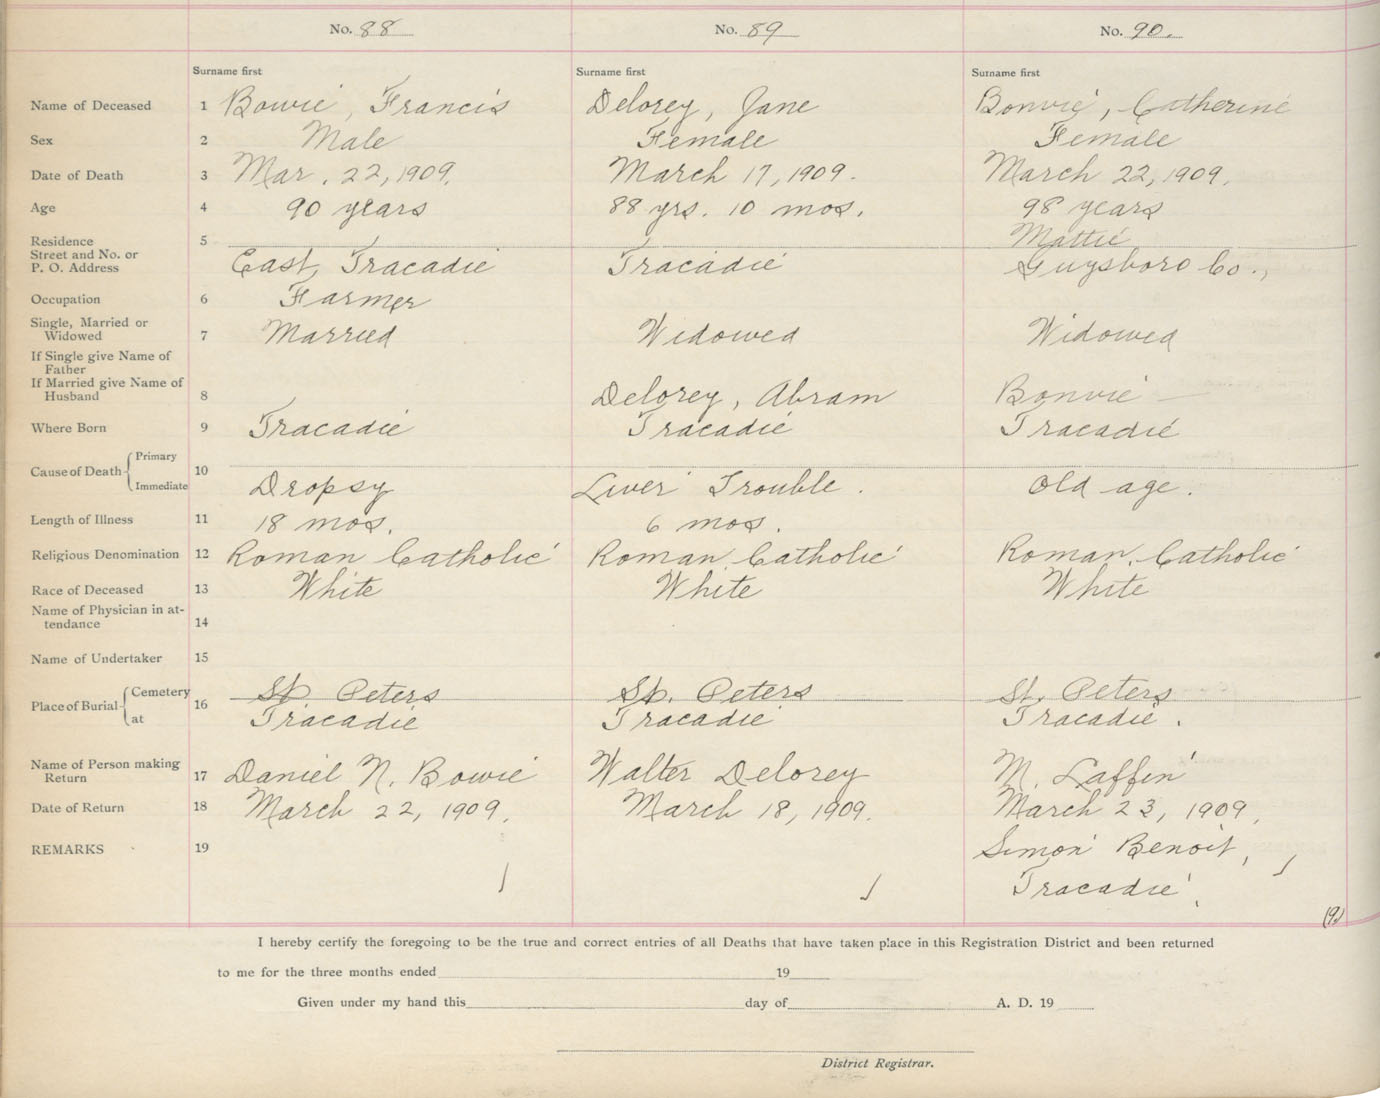 No. 88 No. 89 No. 90.
Surname first Surname first Surname first
Name of Deceased 1 Bowie, Francis Delorey, Jane Bonvie, Catherine
Sex 2 Male Female Female
Date of Death 3 Mar. 22, 1909. March 17, 1909. March 22, 1909.
Age 4 90 years 88 yrs. 10 mos. 98 years
Residence 5 Mattie
Street and No. or
P. O. Address East Tracadie Tracadie Guysboro Co.,
Occupation 6 Farmer
Single, Married or
Widowed 7 Married Widowed Widowed
If Single give Name of
Father
If Married give Name of
Husband 8 Delorey, Abram Bonvie —
Where Born 9 Tracadie Tracadie Tracadie
Cause of Death Primary 10
Immediate Dropsy Liver Trouble. Old age.
Length of Illness 11 18 mos. 6 mos.
Religious Denomination 12 Roman Catholic Roman Catholic Roman Catholic
Race of Deceased 13 White White White
Name of Physician in at-
tendance 14
Name of Undertaker 15
Place of Burial Cemetery 16 St. Peters St. Peters St. Peters
at Tracadie Tracadie Tracadie.
Name of Person making
Return 17 Daniel N. Bowie Walter Delorey M. Laffin
Date of Return 18 March 22, 1909. March 18, 1909. March 23, 1909.
REMARKS 19 Simon Benoit,
Tracadie.
(9.)
I hereby certify the foregoing to be the true and correct entries of all Deaths that have taken place in this Registration District and been returned
to me for the three months ended 19
Given under my hand this day of A. D. 19
District Registrar.